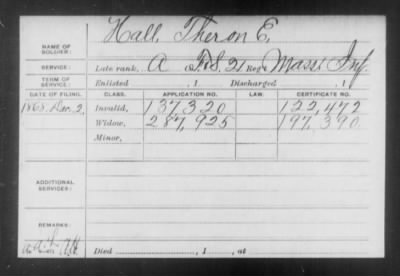 NAME OF SOLDIER: Hall, Theron E.
SERVICE: Late rank, A F. S. 21 Reg't Mass Inf.
TERM OF SERVICE: Enlisted , 1 Discharged , 1 .
DATE OF FILING. CLASS. APPLICATION NO. LAW. CERTIFICATE NO.
1868 Dec. 2, Invalid, 137,320 122,472
Widow, 287,925 197,390
Minor,
ADDITIONAL SERVICES:
REMARKS:
Died , 1 , at